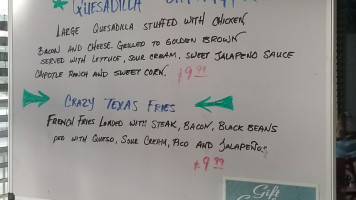 QUESADILLA
LARGE QUESADILLA STUFFED WITH CHICKEN
BACON AND CHEESE GRILLED TO GOLDEN BROWN
SERVED WITH LETTUCE, SOUR CREAM, SWEET JALAPENO SAUCE
CHIPOTLE RANCH AND SWEET CORN. $9.99
CRAZY TEXAS FRIES
FRENCH FRIES LOADED WITH STEAK, BACON, BLACK BEANS
WITH QUESO, SOUR CREAM, PICO AND JALAPEÑO
$9.99
Gift